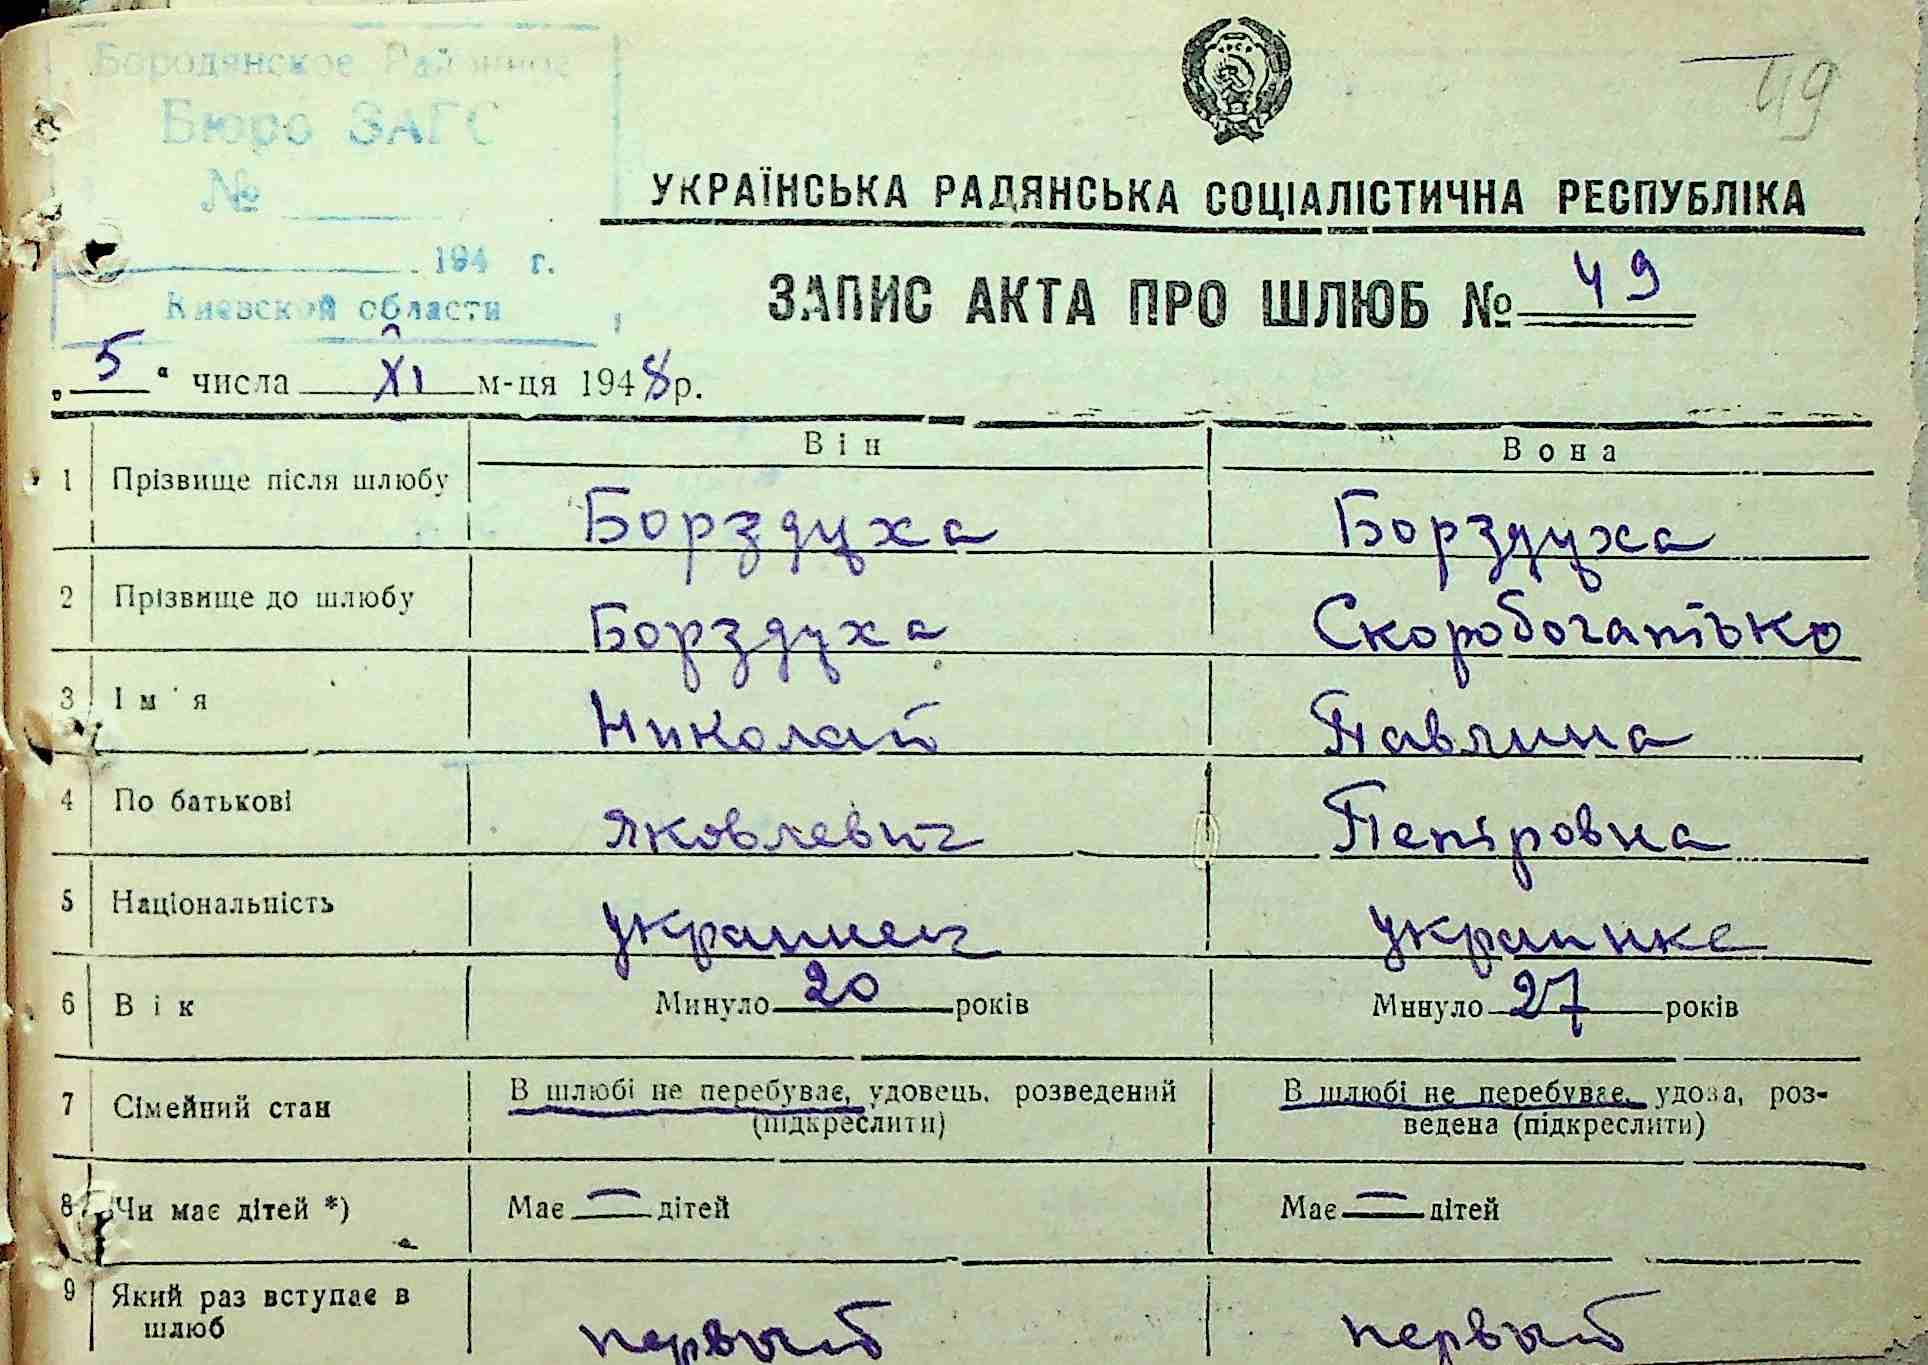 Бородянское Районное
Бюро ЗАГС
№
194 г.
Киевской области
49
УКРАЇНСЬКА РАДЯНСЬКА СОЦІАЛІСТИЧНА РЕСПУБЛІКА
ЗАПИС АКТА ПРО ШЛЮБ № 49
„5“ числа XI м-ця 1948 р.
Він Вона
1 Прізвище після шлюбу Борздуха Борздуха
2 Прізвище до шлюбу Борздуха Скоробогатько
3 Ім'я Николай Павлина
4 По батькові Яковлевич Петровна
5 Національність украинец украинка
6 Вік Минуло 20 років Минуло 27 років
7 Сімейний стан В шлюбі не перебуває, удовець, розведений (підкреслити) В шлюбі не перебуває, удова, роз-
ведена (підкреслити)
8 Чи має дітей *) Має — дітей Має — дітей
9 Який раз вступає в шлюб первый первый